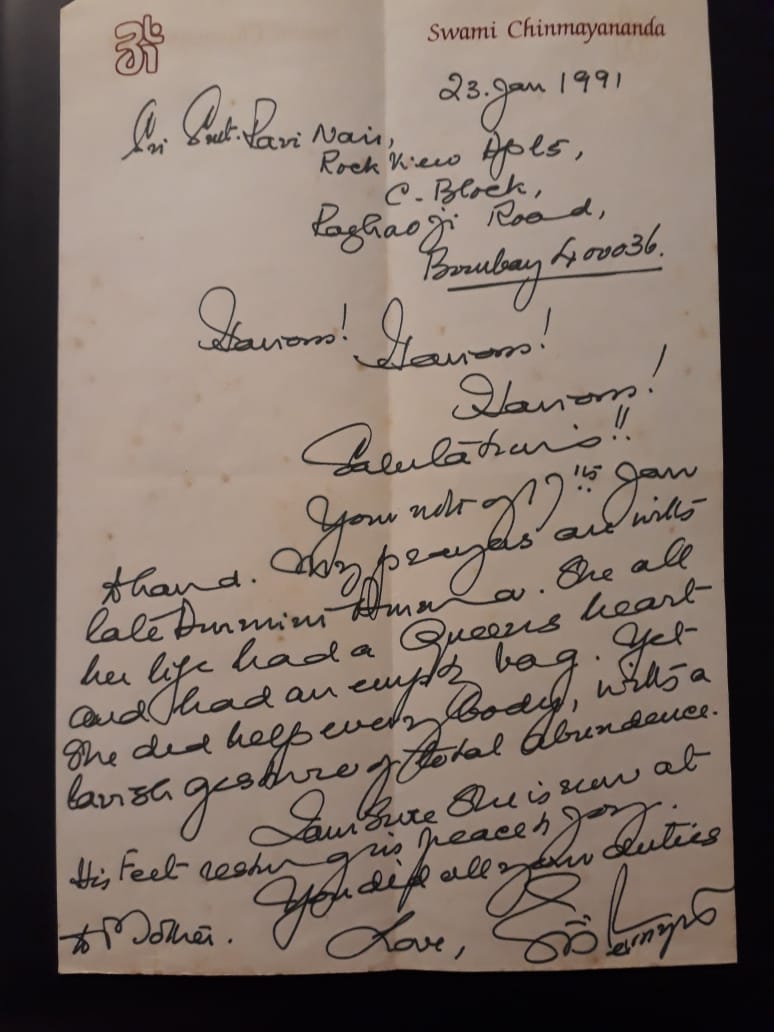 ॐ
Swami Chinmayananda
23. Jan 1991
Sri Smt. Ravi Nair,
Rock View Apts,
C. Block,
Raghaoji Road,
Bombay 400036.
Hariom! Hariom!
Hariom!
Salutations!!
Your note of 17th Jan
to hand. My prayers are with
late Ammini Amma. She all
her life had a Queens heart
and had an empty bag. Yet
She did help every body, with a
lavish gesture of total abundence.
I am Sure She is now at
His Feet resting in peace & joy.
You did all your duties
to Mother.
Love,